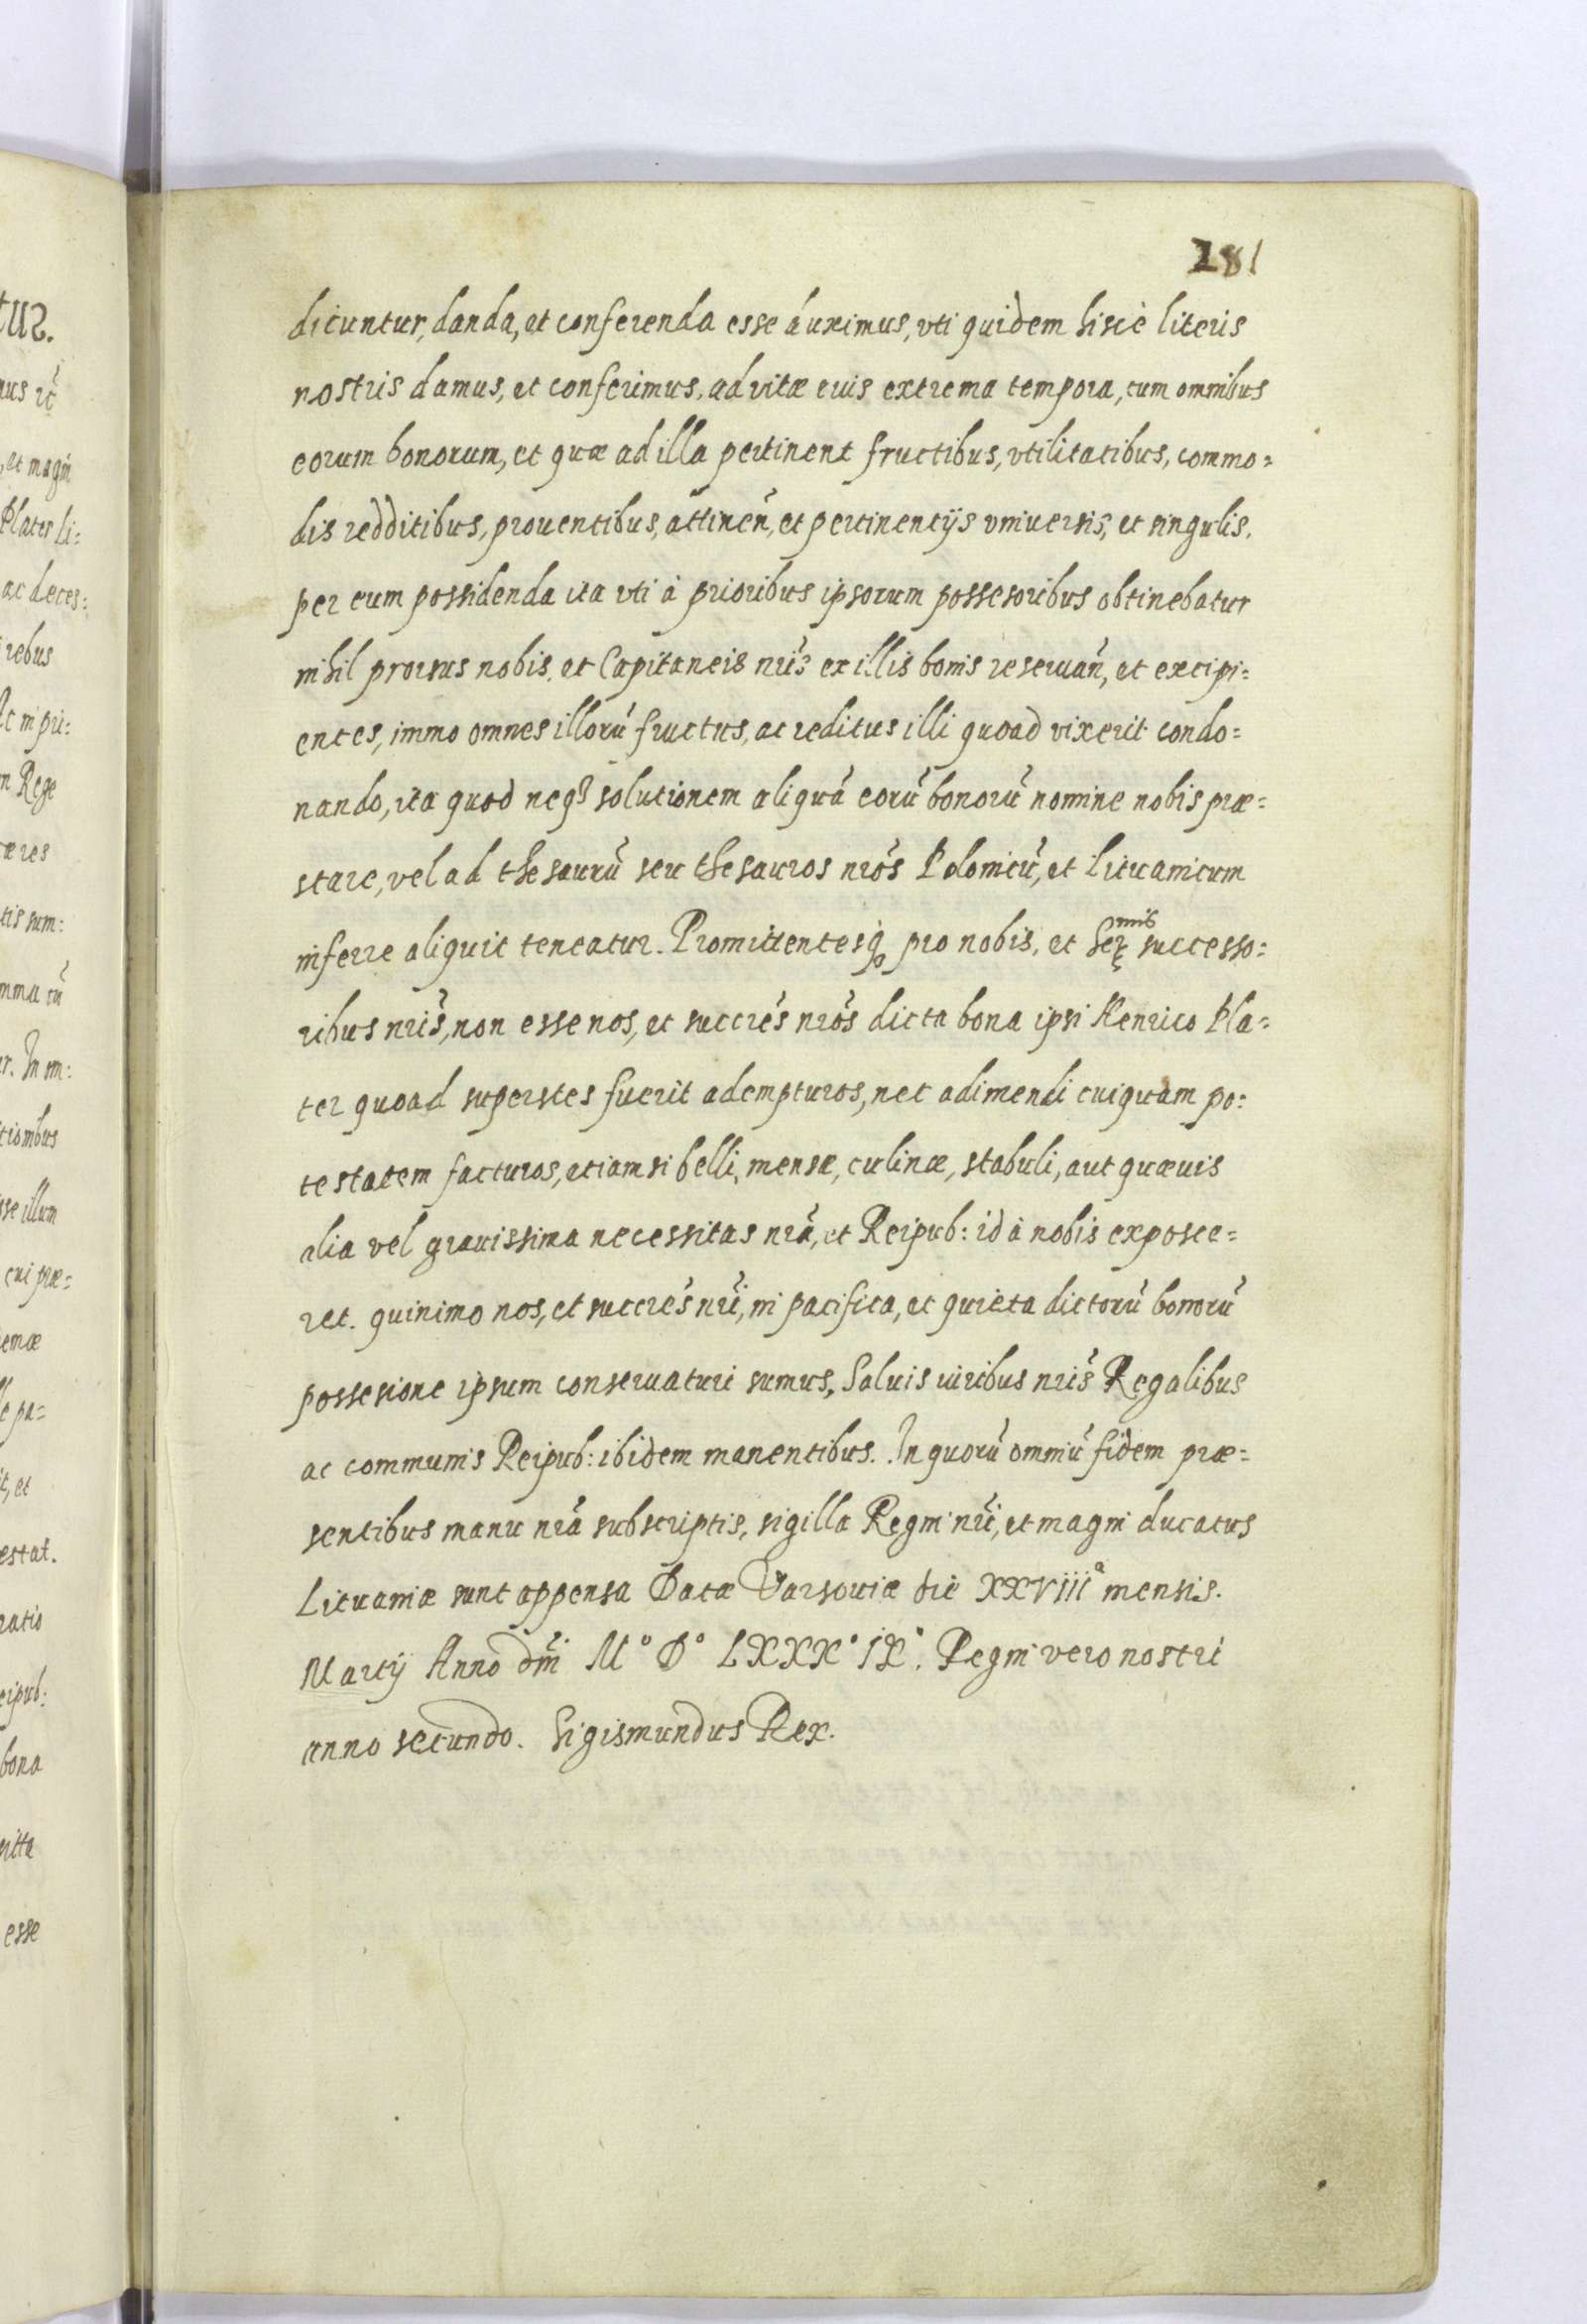 281
dicuntur, danda, et conferenda esse duximus, vti quidem hisce literis
nostris damus, et conferimus, ad vitæ eius extrema tempora, cum omnibus
eorum bonorum, et quæ ad illa pertinent fructibus, vtilitatibus, commo=
dis redditibus, prouentibus, attineñ, et pertinentijs vniuersis, et singulis,
per eum possidenda ita vti à prioribus ipsorum possesoribus obtinebatur
nihil prorsus nobis, et Capitaneis nris̃ ex illis bonis reseruañ, et excipi=
entes, immo omnes illorũ fructus, ac reditus illi quoad vixerit condo=
nando, ita quod neq3 solutionem aliquã eorũ bonorũ nomine nobis præ=
stare, vel ad thesaurũ seu thesauros nrõs Polonicũ, et Lituanicum
inferre aliquit teneatur. Promittentesq3 pro nobis, et Ser: mis successo:
ribus nris̃, non esse nos, et succrẽs nrõs dicta bona ipsi Henrico Pla=
ter quoad superstes fuerit adempturos, nec adimendi cuiquam po:
testatem facturos, etiamsi belli, mensæ, culinæ, stabuli, aut quæuis
alia vel grauissima necessitas nrã, et Reipub: id à nobis exposce=
ret. quinimo nos, et succrẽs nrĩ, in pacifica, et quieta dictorũ bonorũ
possesione ipsum conseruaturi sumus, Saluis iuribus nris̃ Regalibus
ac communis Reipub: ibidem manentibus. In quorũ omniũ fidem præ=
sentibus manu nrã subscriptis, sigilla Regni nrĩ, et magni ducatus
Lituaniæ sunt appensa Datæ Varsouiæ die XXVIIIª mensis.
Martij Anno dñi M° D° LXXX° IX°. Regni vero nostri
anno secundo. Sigismundus Rex.